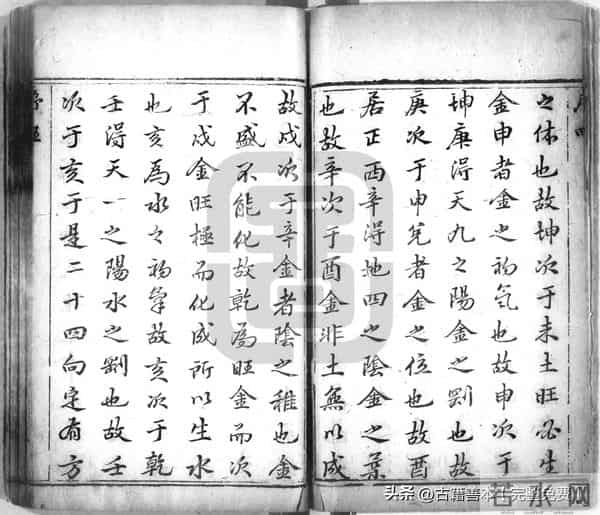 序四
之体也故坤次于未土旺必生
金申者金之初气也故申次于
坤庚得天九之陽金之剛也故
庚次于申兌者金之位也故酉
居正西辛得地四之陰金之葉
也故辛次于酉金非土無以成
故戌次于辛金者陰之稚也金
不盛不能化故乾為旺金而次
于戌金旺極而化成所以生水
也亥為水之初氣故亥次于乾
壬得天一之陽水之剛也故壬
次于亥于是二十四向定有方
頭条 @古籍善本(完整免費